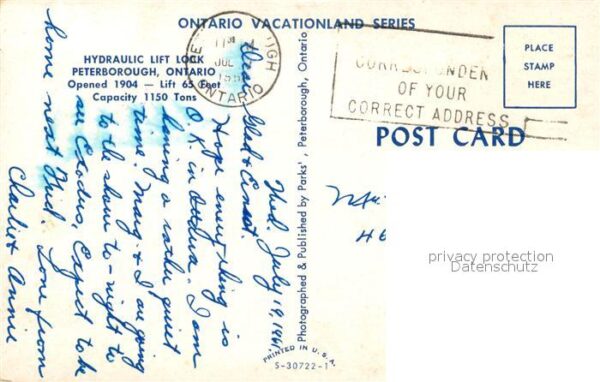 ONTARIO VACATIONLAND SERIES
HYDRAULIC LIFT LOCK
PETERBOROUGH, ONTARIO
Opened 1904 — Lift 65 Feet
Capacity 1150 Tons
Wed. July 19, 1961
Dear Glad & Ernest.
Hope everything is
O.K. in I am
having a rather quiet
time. Marg & I are going
to the show to-night to
see Exodus. Expect to be
home next Wed. Love from
Charlie & Annie
Photographed & Published by Parks', Peterborough, Ontario
PRINTED IN U.S.A.
S-30722-1
JUL
ONTARIO
CORRESPONDEN
OF YOUR
CORRECT ADDRESS
PLACE
STAMP
HERE
POST CARD
privacy protection
Datenschutz